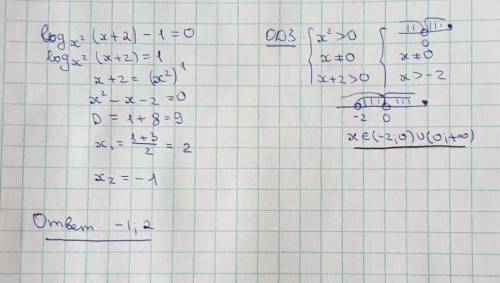 log_{x²} (x+2) - 1 = 0
log_{x²} (x+2) = 1
x+2 = (x²)¹
x² - x - 2 = 0
D = 1 + 8 = 9
x₁ = (1+3)/2 = 2
x₂ = -1
Ответ -1; 2
ОДЗ: { x² > 0
x ≠ 0
x+2 > 0
{ 0
x ≠ 0
x > -2
-2 0
x ∈ (-2; 0) ∪ (0; +∞)